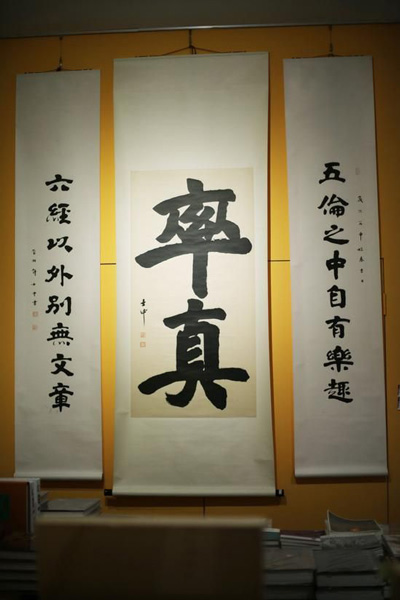 五倫之中自有樂趣
率真
六經以外別無文章